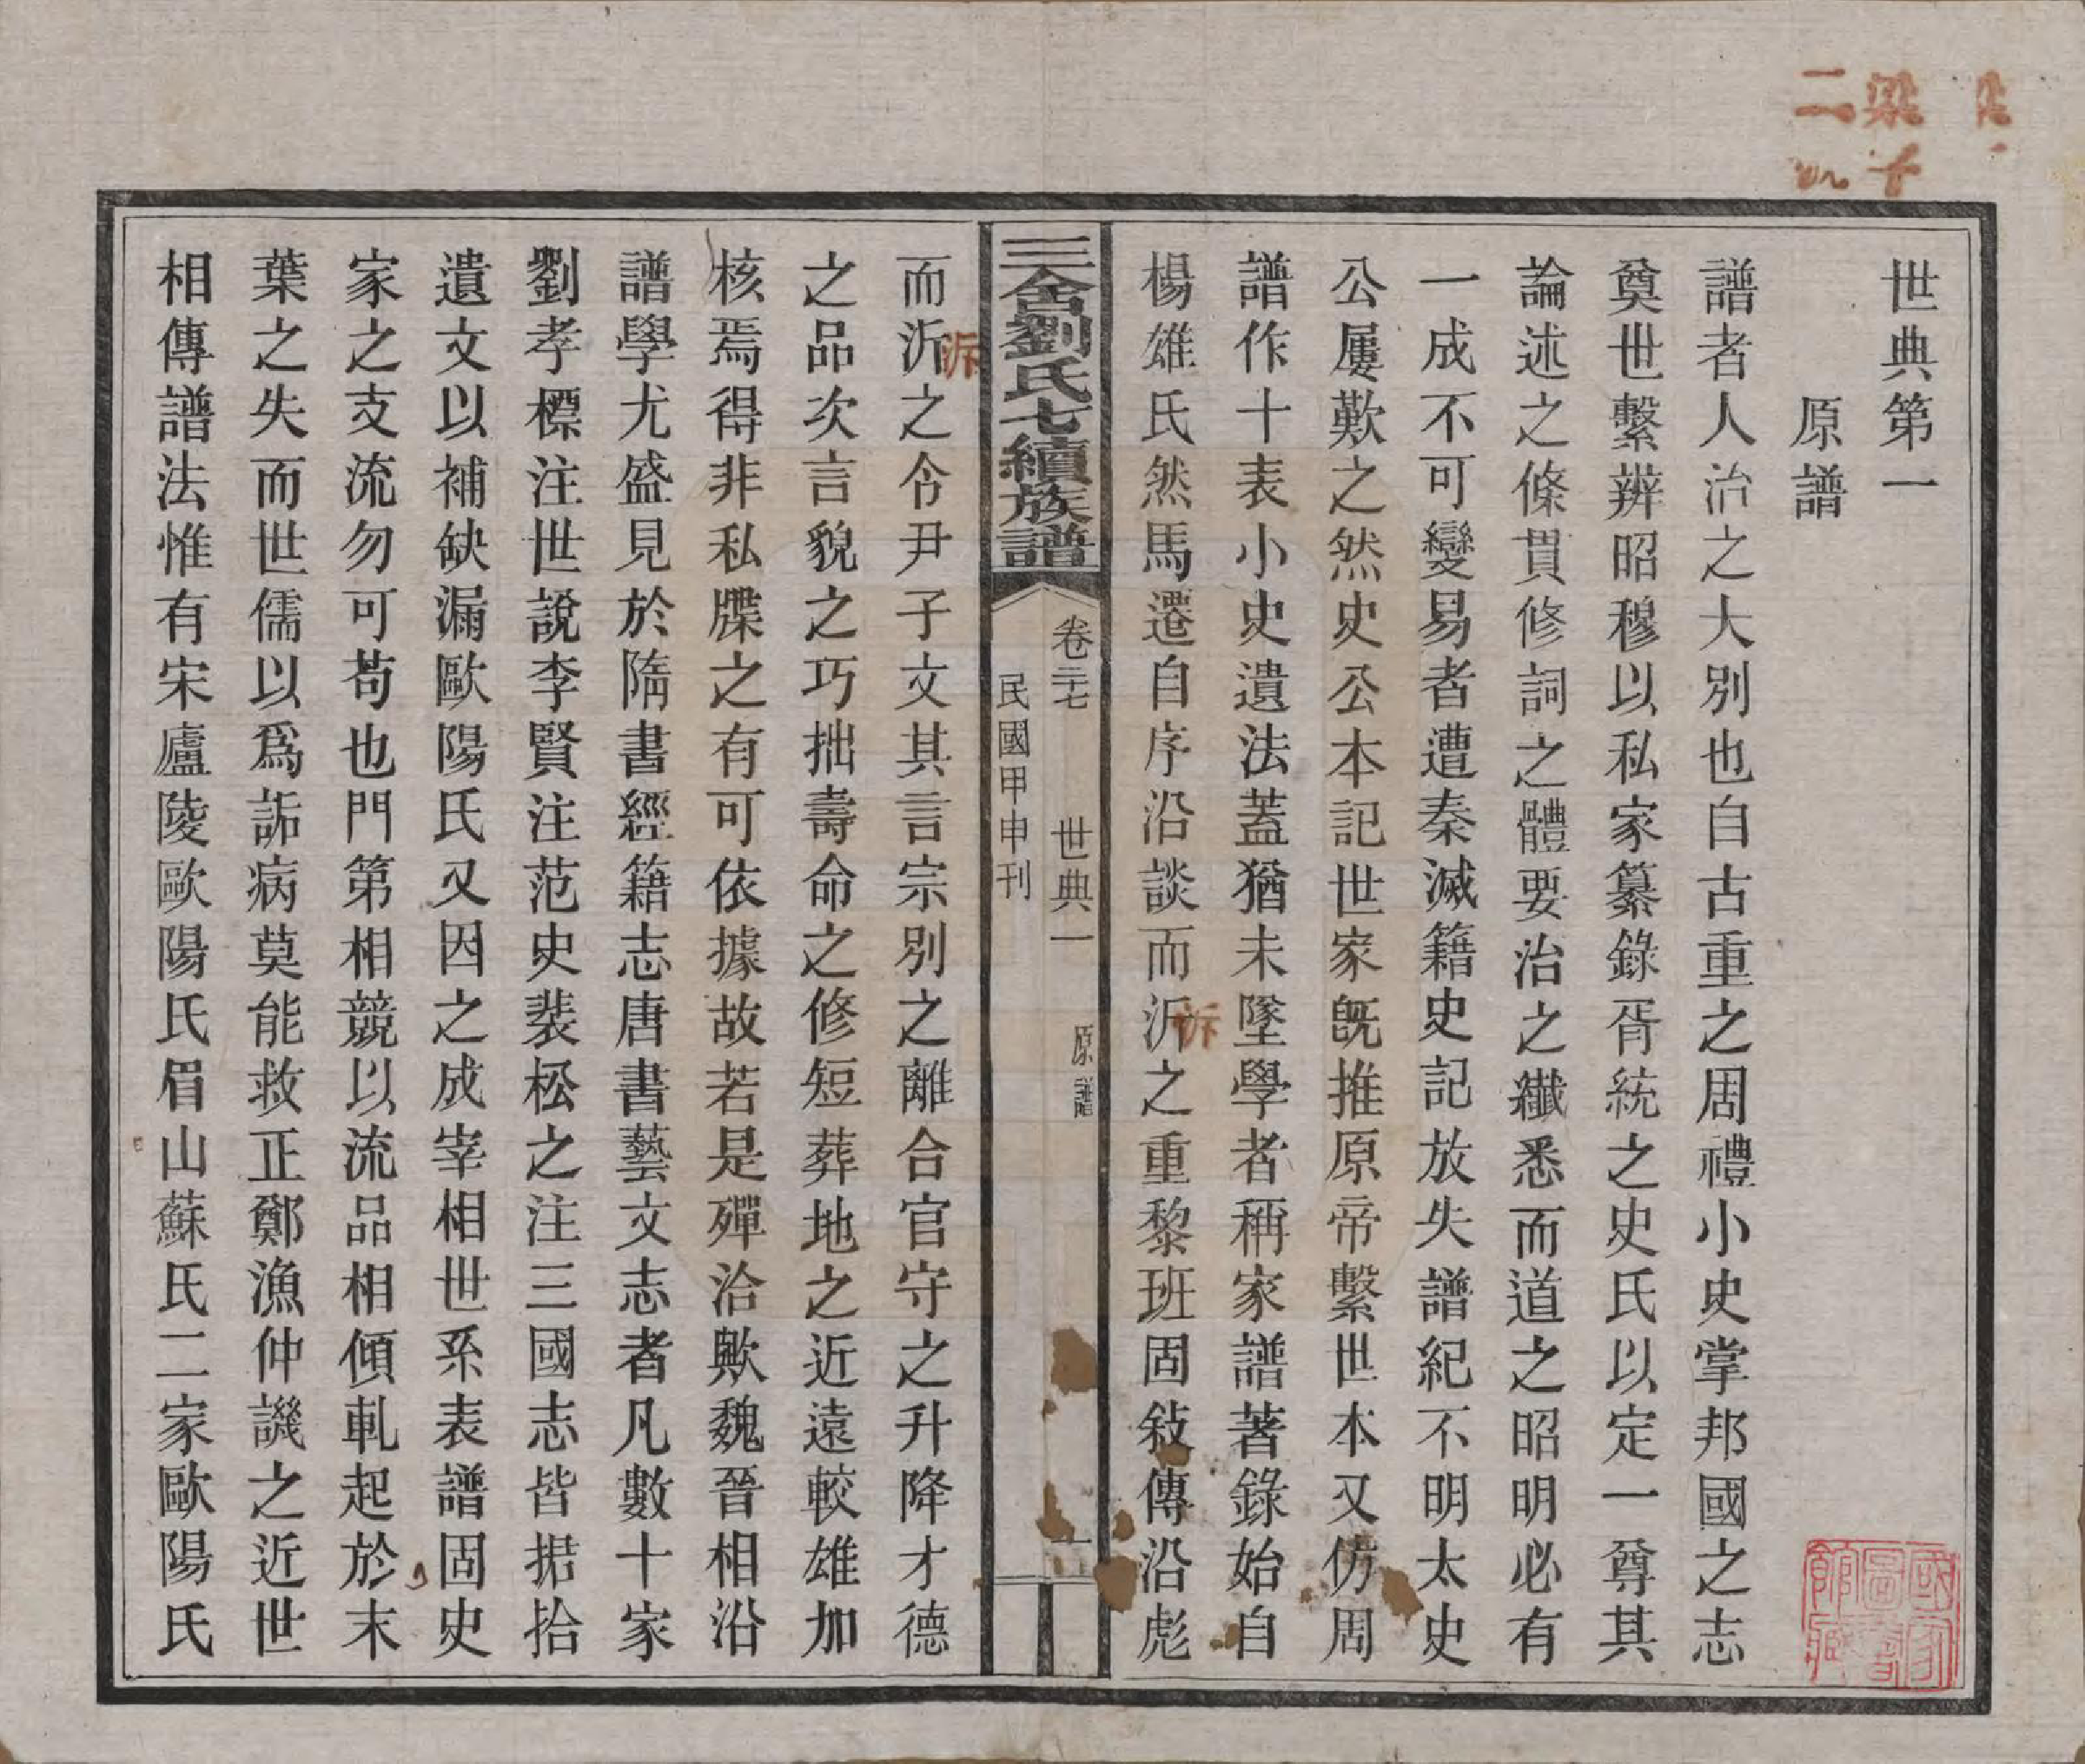 世典第一
原譜
譜者人治之大別也自古重之周禮小史掌邦國之志
奠世繫辨昭穆以私家纂錄胥統之史氏以定一尊其
論述之條貫修詞之體要治之纖悉而道之昭明必有
一成不可變易者遭秦滅籍史記放失譜紀不明太史
公屢歎之然史公本記世家旣推原帝繫世本又仿周
譜作十表小史遺法蓋猶未墜學者稱家譜著錄始自
楊雄氏然馬遷自序沿談而泝之重黎班固敍傳沿彪
泝
三舍劉氏七續族譜
卷三十七 世典一 原譜 一
民國甲申刊
而泝之令尹子文其言宗別之離合官守之升降才德
泝
之品次言貌之巧拙壽命之修短葬地之近遠較雄加
核焉得非私牒之有可依據故若是殫洽歟魏晉相沿
譜學尤盛見於隋書經籍志唐書藝文志者凡數十家
劉孝標注世說李賢注范史裴松之注三國志皆据拾
遺文以補缺漏歐陽氏又因之成宰相世系表譜固史
家之支流勿可苟也門第相競以流品相傾軋起於末
葉之失而世儒以爲詬病莫能救正鄭漁仲譏之近世
相傳譜法惟有宋廬陵歐陽氏眉山蘇氏二家歐陽氏
國家圖書館藏